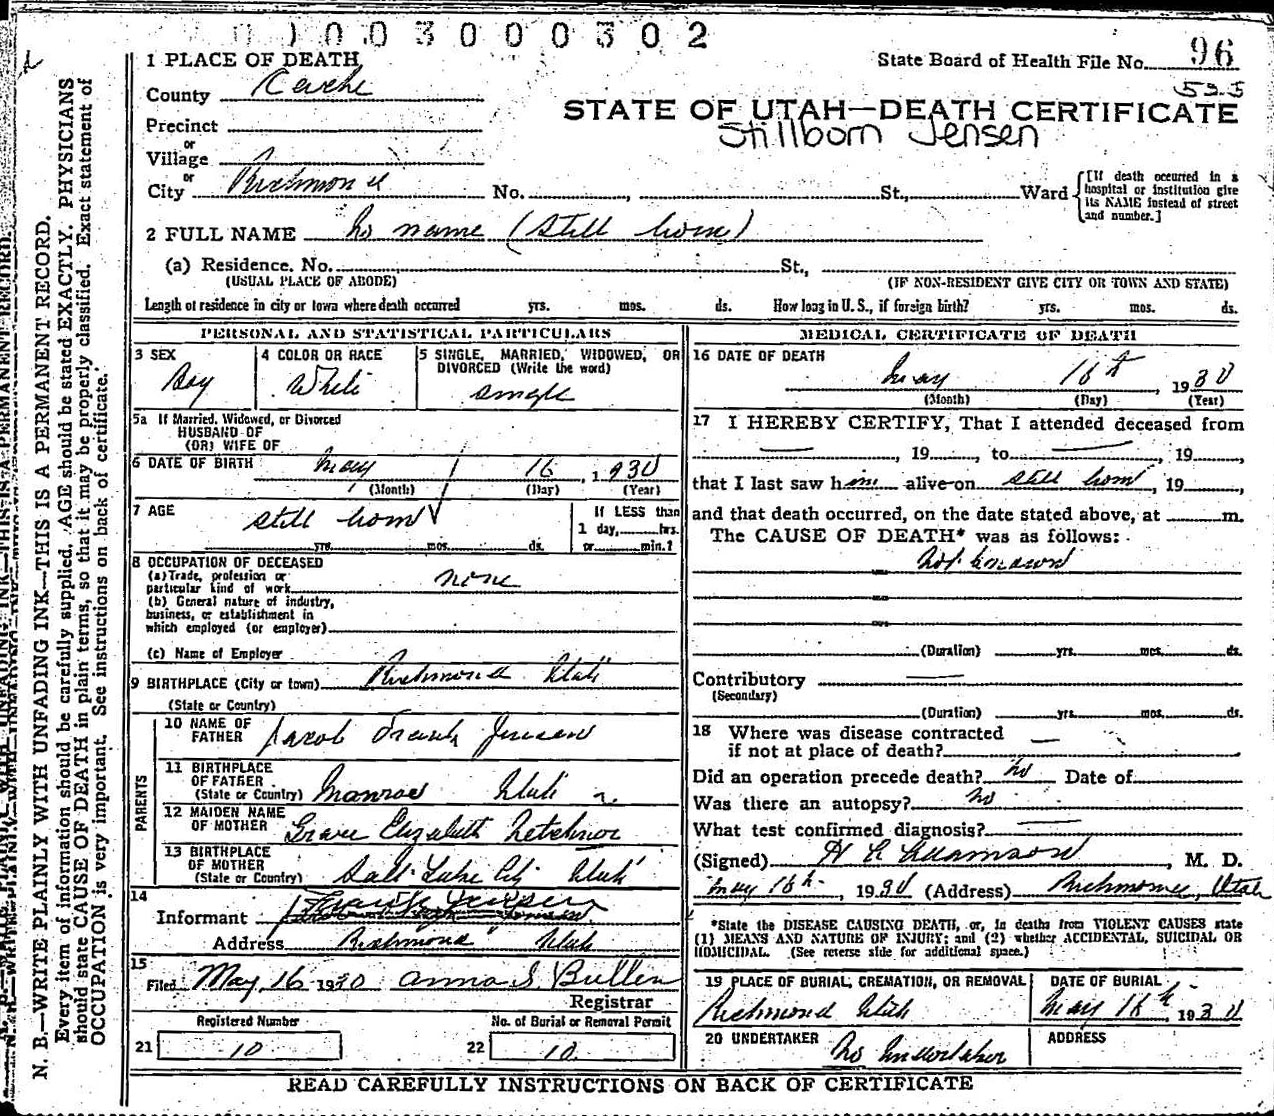 0 1 0 0 3 0 0 0 3 0 2
1 PLACE OF DEATH
State Board of Health File No. 96
County Cache
535
STATE OF UTAH—DEATH CERTIFICATE
Stillborn Jensen
Precinct
or
Village
or
City Richmond No. , St., Ward
[If death occurred in a hospital or institution give its NAME instead of street and number.]
2 FULL NAME No name (Still born)
(a) Residence. No. St.,
(USUAL PLACE OF ABODE) (IF NON-RESIDENT GIVE CITY OR TOWN AND STATE)
Length of residence in city or town where death occurred yrs. mos. ds. How long in U. S., if foreign birth? yrs. mos. ds.
PERSONAL AND STATISTICAL PARTICULARS
3 SEX Boy
4 COLOR OR RACE White
5 SINGLE, MARRIED, WIDOWED, OR DIVORCED (Write the word) single
5a If Married, Widowed, or Divorced
HUSBAND OF
(OR) WIFE OF
6 DATE OF BIRTH May 16, 1930
(Month) (Day) (Year)
7 AGE still born
yrs. mos. ds.
If LESS than
1 day, hrs.
or min.?
8 OCCUPATION OF DECEASED
(a) Trade, profession or
particular kind of work none
(b) General nature of industry,
business, or establishment in
which employed (or employer)
(c) Name of Employer
9 BIRTHPLACE (City or town) Richmond Utah
(State or Country)
PARENTS
10 NAME OF FATHER Jacob Frank Jensen
11 BIRTHPLACE OF FATHER (State or Country) Monroe Utah
12 MAIDEN NAME OF MOTHER Grace Elizabeth
13 BIRTHPLACE OF MOTHER (State or Country) Salt Lake City Utah
14
Informant Frank Jensen
Address Richmond Utah
15
Filed May 16 1930 Anna S Bullen
Registrar
Registered Number
21 10
No. of Burial or Removal Permit
22 10
MEDICAL CERTIFICATE OF DEATH
16 DATE OF DEATH
May 16th, 1930
(Month) (Day) (Year)
17 I HEREBY CERTIFY, That I attended deceased from
, 19 , to , 19 ,
that I last saw him alive on still born, 19 ,
and that death occurred, on the date stated above, at m.
The CAUSE OF DEATH* was as follows:
Not known
(Duration) yrs. mos. ds.
Contributory
(Secondary)
(Duration) yrs. mos. ds.
18 Where was disease contracted
if not at place of death?
Did an operation precede death? no Date of
Was there an autopsy? no
What test confirmed diagnosis?
(Signed) , M. D.
May 16th, 1930 (Address) Richmond, Utah
*State the DISEASE CAUSING DEATH, or, in deaths from VIOLENT CAUSES state
(1) MEANS AND NATURE OF INJURY; and (2) whether ACCIDENTAL, SUICIDAL OR
HOMICIDAL. (See reverse side for additional space.)
19 PLACE OF BURIAL, CREMATION, OR REMOVAL
Richmond Utah
DATE OF BURIAL
May 16th 1930
20 UNDERTAKER No undertaker
ADDRESS
READ CAREFULLY INSTRUCTIONS ON BACK OF CERTIFICATE
N. B.—WRITE PLAINLY WITH UNFADING INK—THIS IS A PERMANENT RECORD.
Every item of information should be carefully supplied. AGE should be stated EXACTLY. PHYSICIANS
should state CAUSE OF DEATH in plain terms, so that it may be properly classified. Exact statement of
OCCUPATION is very important. See instructions on back of certificate.